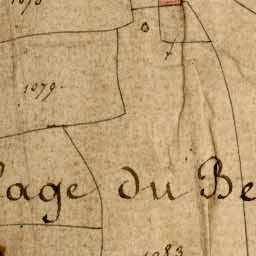 1079
lage du Be
1083